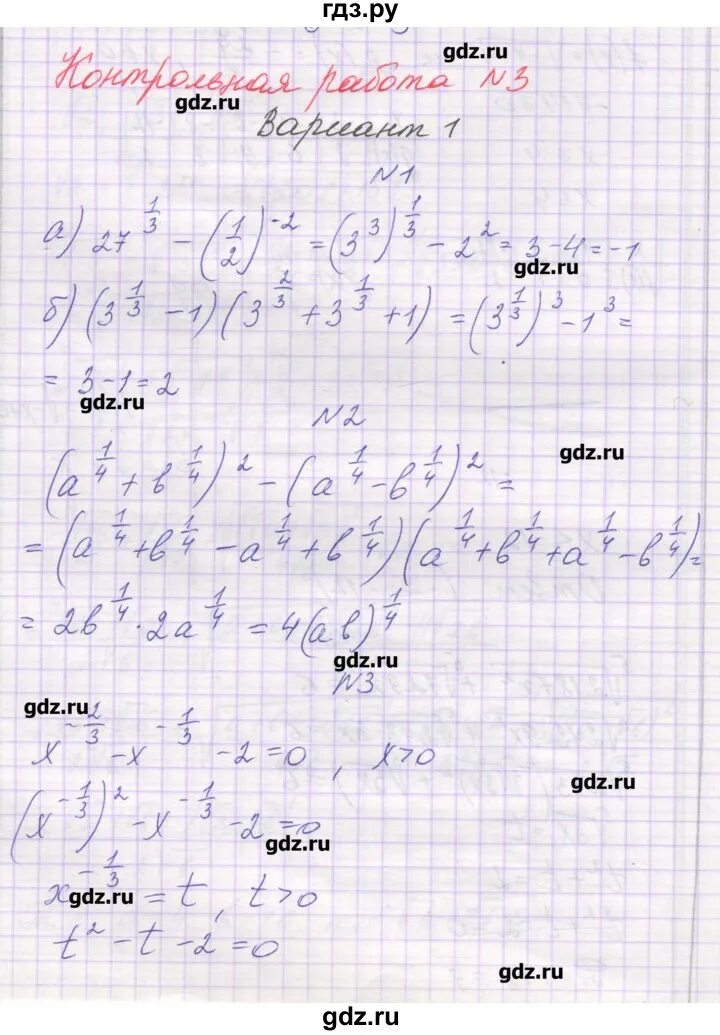 гдз.ру
gdz.ru
Контрольная работа №3
gdz.ru
Вариант 1
№1
а) 27^(1/3) − (1/2)^(-2) = (3^3)^(1/3) − 2^2 = 3 − 4 = −1
gdz.ru
б) (3^(1/3) − 1)(3^(2/3) + 3^(1/3) + 1) = (3^(1/3))^3 − 1^3 =
= 3 − 1 = 2
gdz.ru
№2
gdz.ru
(a^(1/4) + b^(1/4))^2 − (a^(1/4) − b^(1/4))^2 =
= (a^(1/4) + b^(1/4) − a^(1/4) + b^(1/4))(a^(1/4) + b^(1/4) + a^(1/4) − b^(1/4)) =
= 2b^(1/4) · 2a^(1/4) = 4(ab)^(1/4)
gdz.ru
№3
gdz.ru
x^(-2/3) − x^(-1/3) − 2 = 0, x > 0
gdz.ru
(x^(-1/3))^2 − x^(-1/3) − 2 = 0
gdz.ru
x^(-1/3) = t, t > 0
gdz.ru
t^2 − t − 2 = 0
gdz.ru
gdz.ru